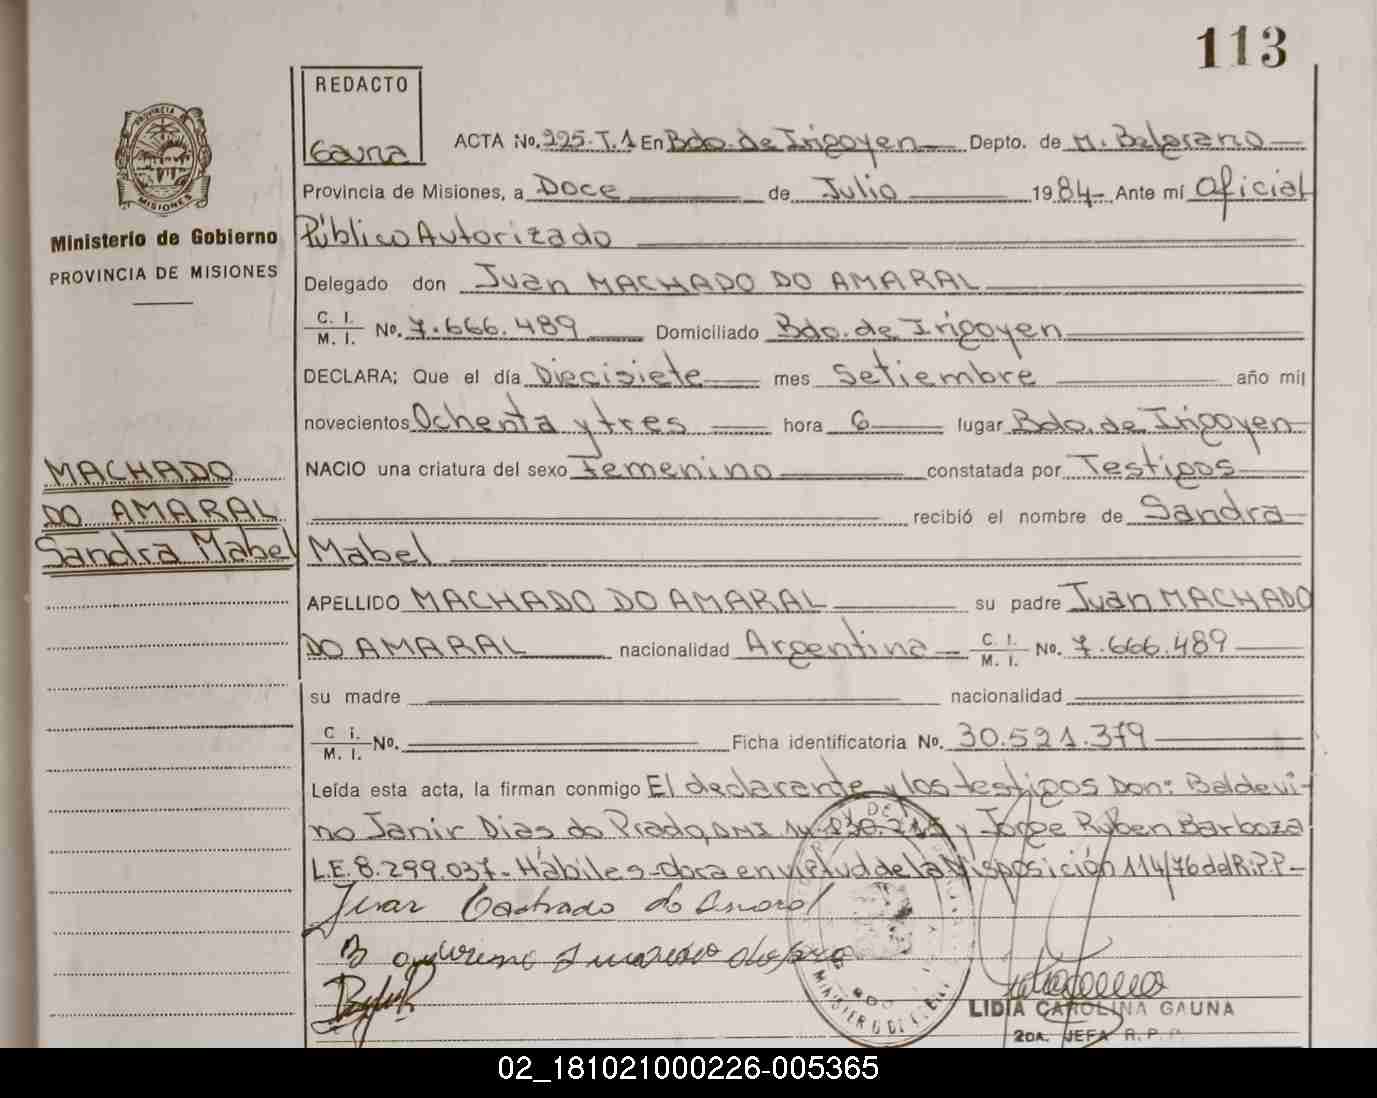 113
REDACTO
Gauna
ACTA No. 225-T.1 En Bdo. de Irigoyen Depto. de M. Belgrano
PROVINCIA DE MISIONES
Ministerio de Gobierno
PROVINCIA DE MISIONES
Provincia de Misiones, a Doce de Julio 1984 Ante mí Oficial
Público Autorizado
Delegado don Juan MACHADO DO AMARAL
C. I. / M. I. No. 7.666.489 Domiciliado Bdo. de Irigoyen
DECLARA; Que el día Diecisiete mes Setiembre año mil
novecientos Ochenta y tres hora 6 lugar Bdo. de Irigoyen
NACIO una criatura del sexo Femenino constatada por Testigos
recibió el nombre de Sandra
Mabel
MACHADO
DO AMARAL
Sandra Mabel
APELLIDO MACHADO DO AMARAL su padre Juan MACHADO
DO AMARAL nacionalidad Argentina C. I. / M. I. No. 7.666.489
su madre nacionalidad
C. I. / M. I. No. Ficha identificatoria No. 30.521.379
Leída esta acta, la firman conmigo El declarante y los testigos Don: Baldevi-
no Janir Dias do Prado, DMI y Jorge Ruben Barboza
L.E. 8.299.037- Hábiles- obra en virtud de la Disposición 114/76 del R.P.P-
Juan Machado do Amaral
LIDIA CAROLINA GAUNA
2DA. JEFA R. P. P.
02_181021000226-005365